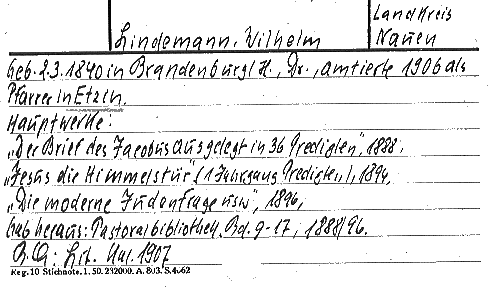 Landkreis
Lindemann, Wilhelm Nauen
Geb. 2.3.1840 in Brandenburg/H., Dr., amtierte 1906 als
Pfarrer in Etzin.
Hauptwerke:
„Der Brief des Jacobus ausgelegt in 36 Predigten", 1888,
„Jesus die Himmelstür" (1 Jahrgang Predigten), 1894,
„Die moderne Judenfrage usw", 1896,
Gab heraus: Pastoralbibliothek, Bd. 9-17, 1888/96.
Lit. Kal. 1907
Reg. 10 Stichnote. 1. 50. 232000. A. 803. S. 4. 62